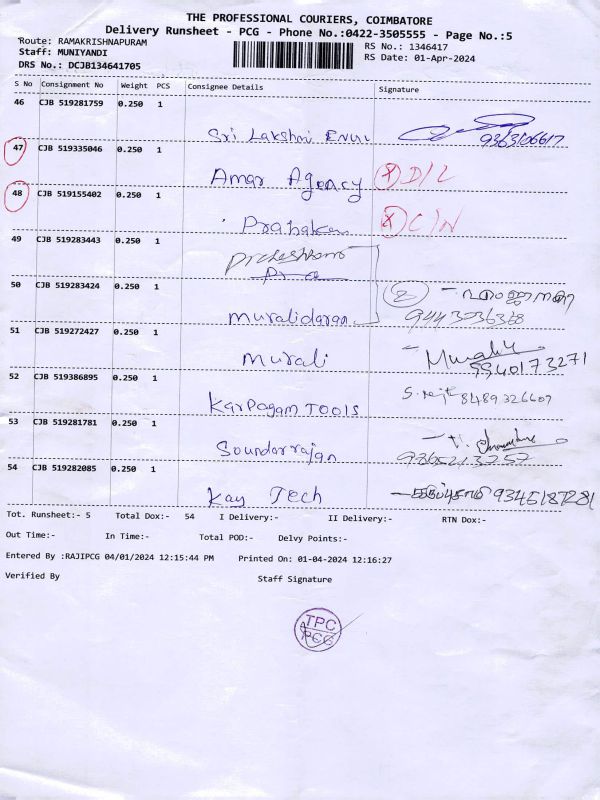 THE PROFESSIONAL COURIERS, COIMBATORE
Delivery Runsheet - PCG - Phone No.:0422-3505555 - Page No.:5
Route: RAMAKRISHNAPURAM
RS No.: 1346417
Staff: MUNIYANDI
RS Date: 01-Apr-2024
DRS No.: DCJB134641705
S No Consignment No Weight PCS Consignee Details Signature
46 CJB 519281759 0.250 1
Sri Lakshmi 9363106617
47 CJB 519335046 0.250 1
Amar Agency D/L
48 CJB 519155402 0.250 1
Prabakar
49 CJB 519283443 0.250 1
50 CJB 519283424 0.250 1
2
Muralidaran
51 CJB 519272427 0.250 1
Murali
52 CJB 519386895 0.250 1
Karpagam Tools 8489326607
53 CJB 519281781 0.250 1
Soundarrajan
54 CJB 519282085 0.250 1
Kay Tech
Tot. Runsheet:- 5 Total Dox:- 54 I Delivery:- II Delivery:- RTN Dox:-
Out Time:- In Time:- Total POD:- Delvy Points:-
Entered By :RAJIPCG 04/01/2024 12:15:44 PM Printed On: 01-04-2024 12:16:27
Verified By Staff Signature
TPC
PCG